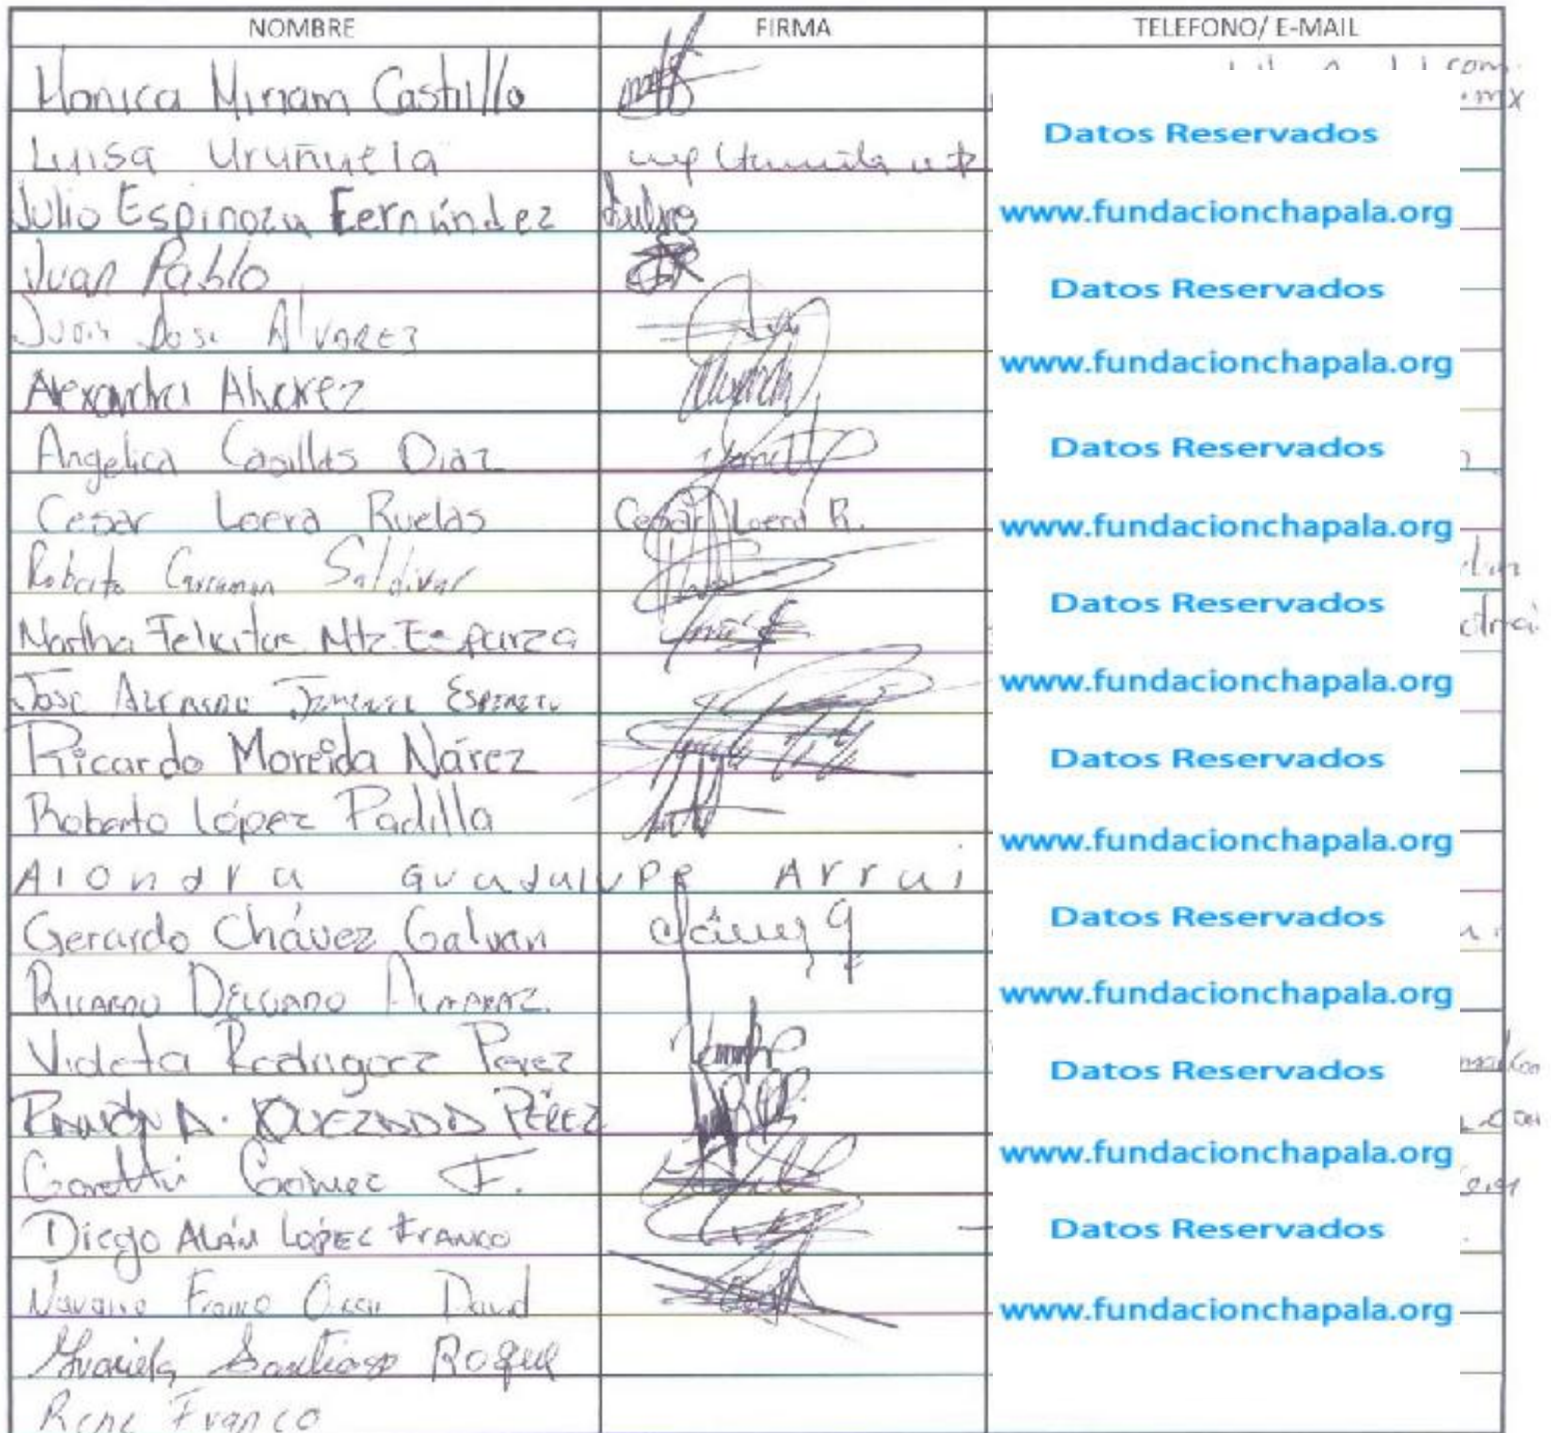 NOMBRE FIRMA TELEFONO/ E-MAIL
Monica Miriam Castillo
com.
.mx
Datos Reservados
Luisa Uruñuela
Julio Espinoza Fernández Julio www.fundacionchapala.org
Juan Pablo
Datos Reservados
Juan Jose Alvarez
www.fundacionchapala.org
Alexandra Alvarez
Angelica Casillas Diaz Datos Reservados
Cesar Loera Ruelas Cesar Loera R. www.fundacionchapala.org
Roberto Saldivar
Datos Reservados
Martha Felicitas Mtz. Esparza
Jose Alfredo Jimenez www.fundacionchapala.org
Ricardo Moreida Nárez Datos Reservados
Roberto López Padilla
www.fundacionchapala.org
Alondra Guadalupe Arrui
Gerardo Chávez Galvan Datos Reservados
Ricardo Delgado Almaraz. www.fundacionchapala.org
Violeta Rodriguez Perez Datos Reservados
Ramón A. Quezada Pérez
www.fundacionchapala.org
Goretti Gomez F.
Diego Alán López Franco Datos Reservados
Navarro Franco Oscar David www.fundacionchapala.org
Santiago Roque
Rene Franco